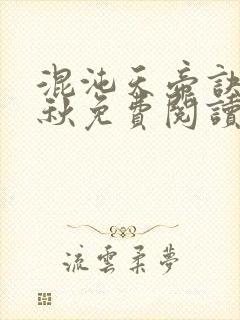 混沌天帝訣
秋免費閱讀
流雲柔夢